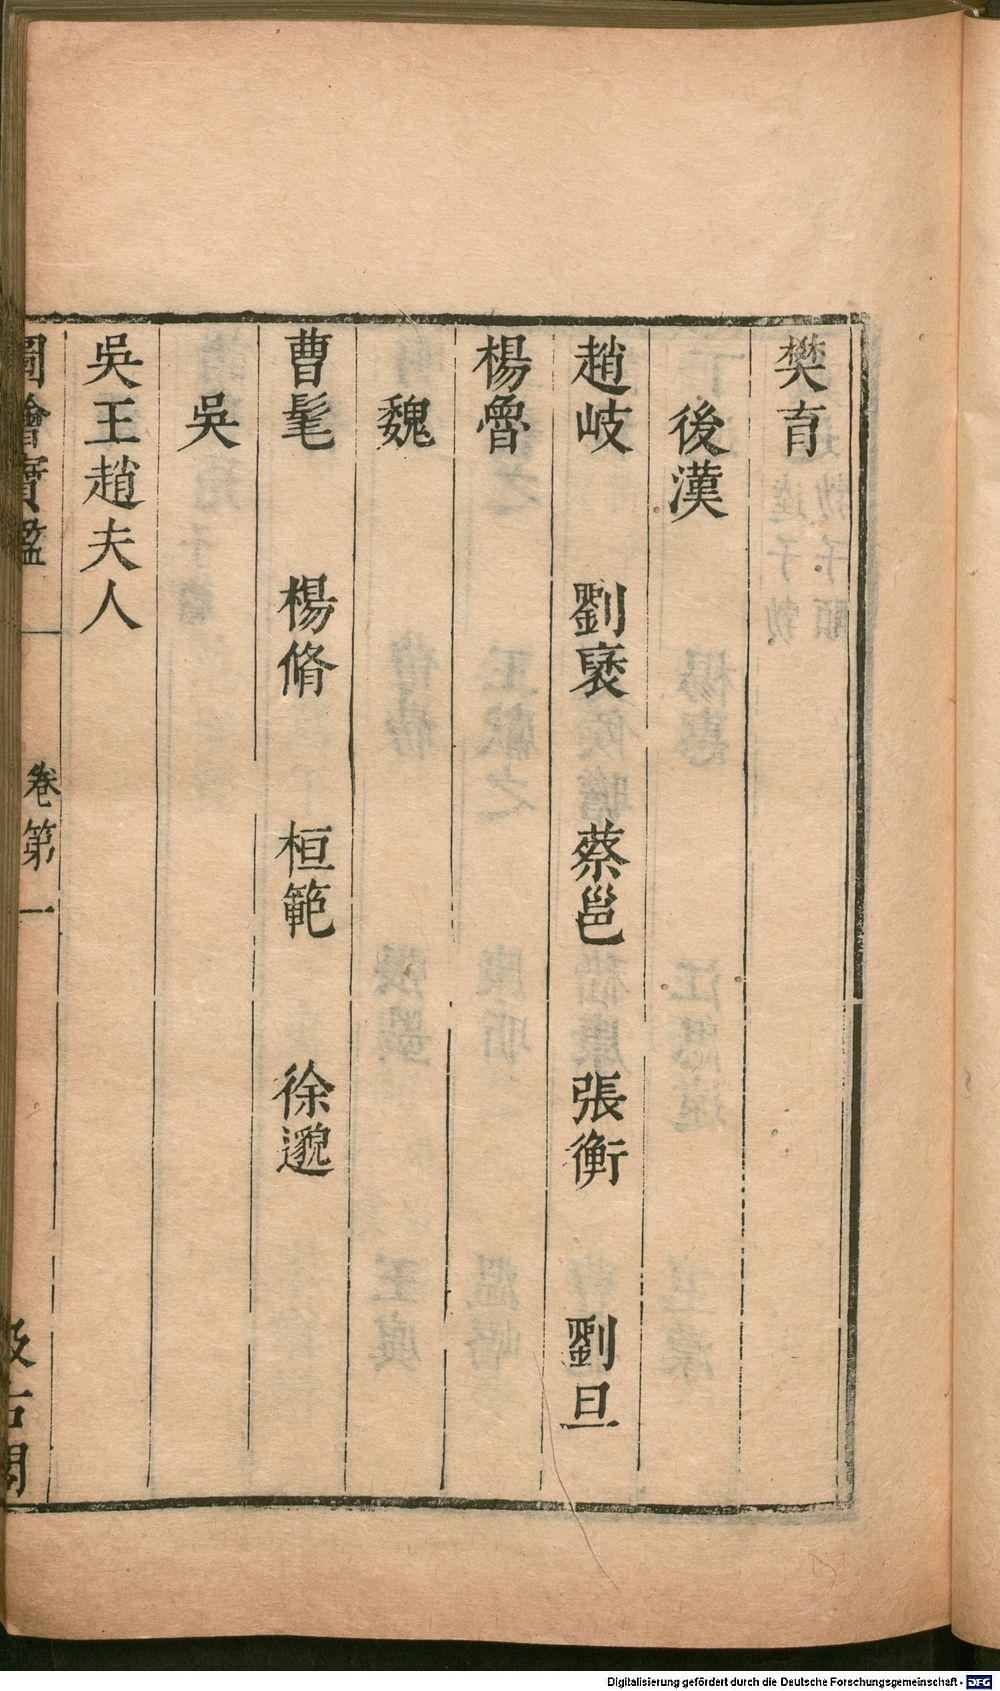 樊育
後漢
趙岐 劉褎 蔡邕 張衡 劉旦
楊魯
魏
曹髦 楊脩 桓範 徐邈
吳
吳王趙夫人
圖繪寶鑑 卷第一 汲古閣
Digitalisierung gefördert durch die Deutsche Forschungsgemeinschaft - DFG